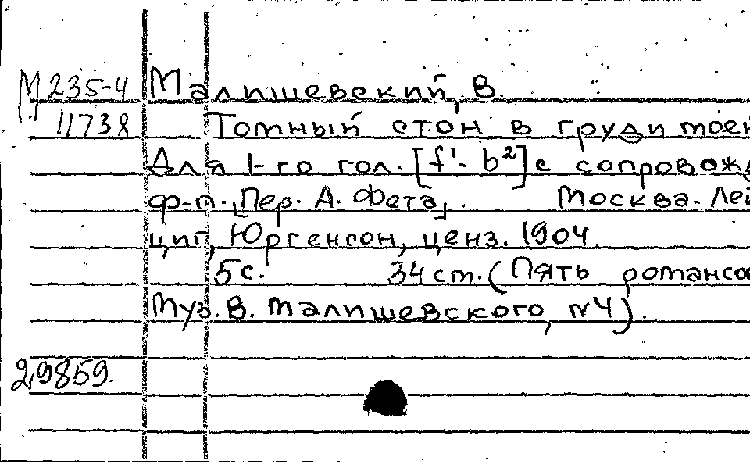 М 235-4 Малишевский, В.
11738 Томный стон в груди моей
Для 1-го гол. [f¹- b²] с сопровожд
ф-п. [Пер. А. Фета]. Москва. Лей
циг, Юргенсон, ценз. 1904.
5 с. 34 ст. (Пять романсо
Муз. В. Малишевского, №4).
29859.